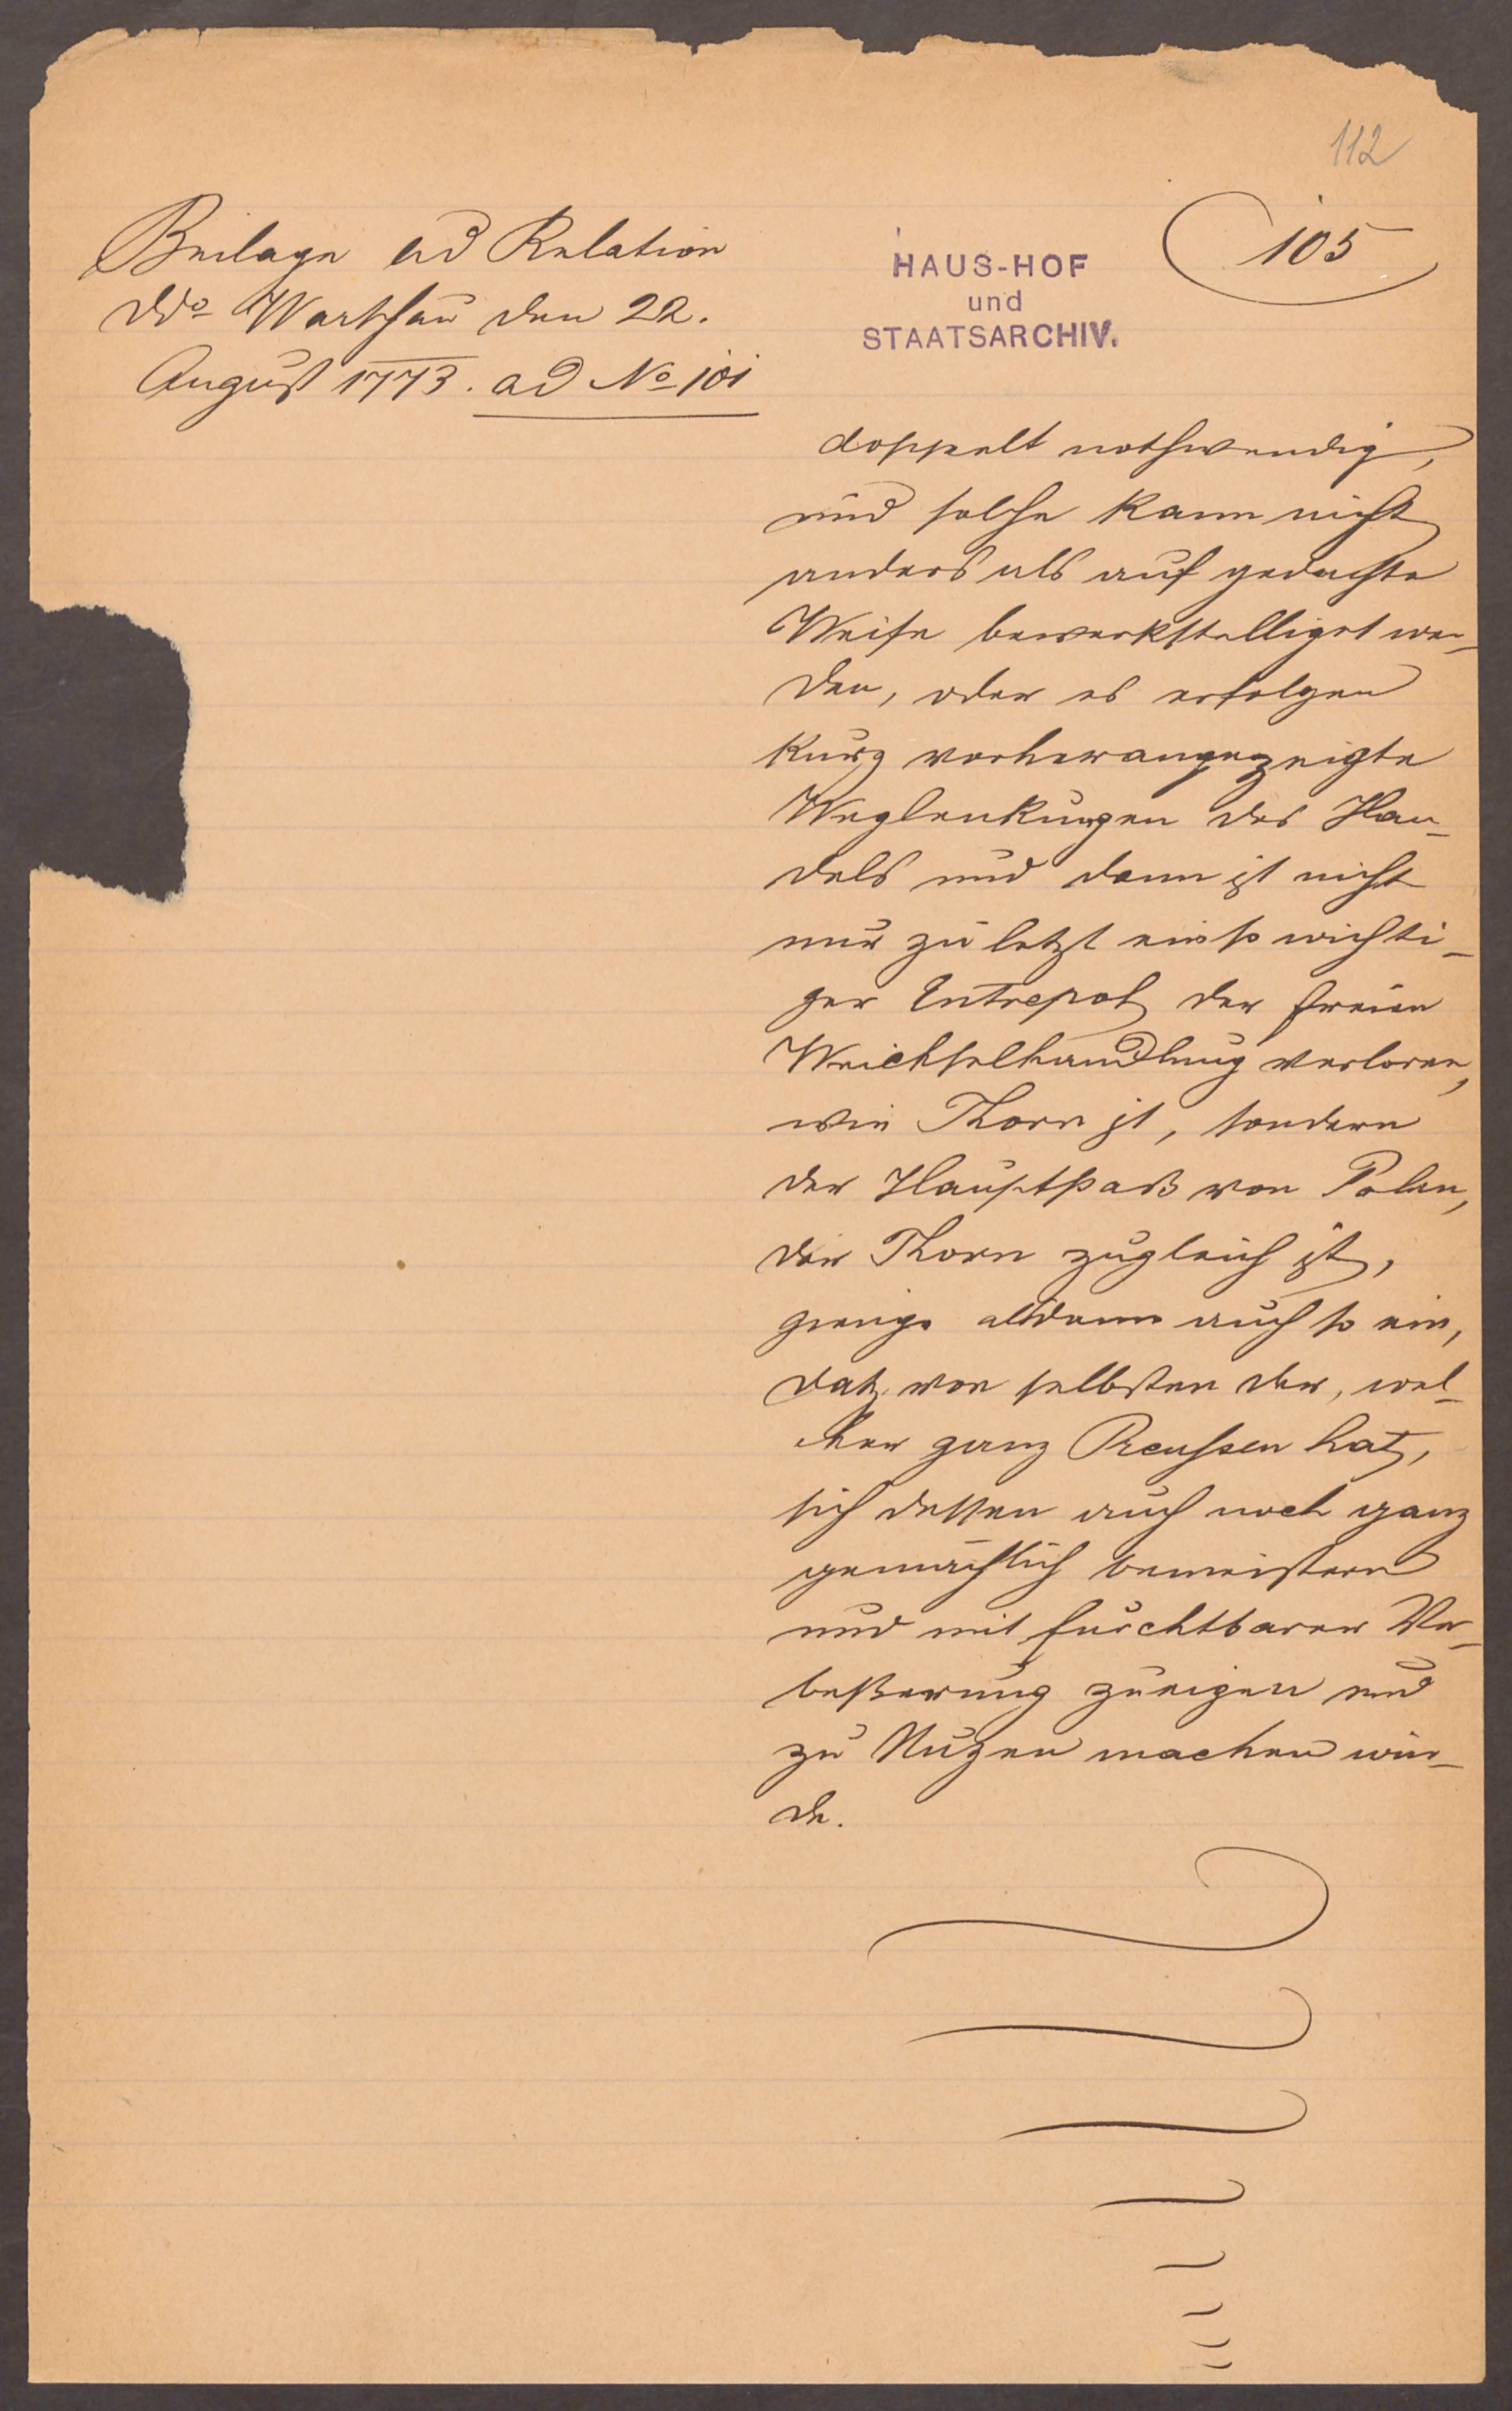 112
105
Beilage ad Relation
ddo Warschau den 22.
August 1773. ad No 101
HAUS-HOF
und
STAATSARCHIV.
doppelt nothwendig,
und solche kann nicht
anders als auf gedachte
Weise bewerkstelligt wer-
den, oder es erfolgen
kurz vorherangezeigte
Weglenkungen des Han-
dels und dann ist nicht
nur zu letzt ein so wichti-
ger Entrepot der freien
Weichselhandlung verloren,
wie Thorn ist, sondern
der Hauptpaß von Polen,
der Thorn zugleich ist,
gienge alsdann auch so ein,
daß von selbsten der, wel-
cher ganz Preussen hat,
sich dessen auch noch ganz
gemächlich bemeistern
und mit furchtbarer Ver-
beßerung zueigen und
zu Nuzen machen wür-
de.